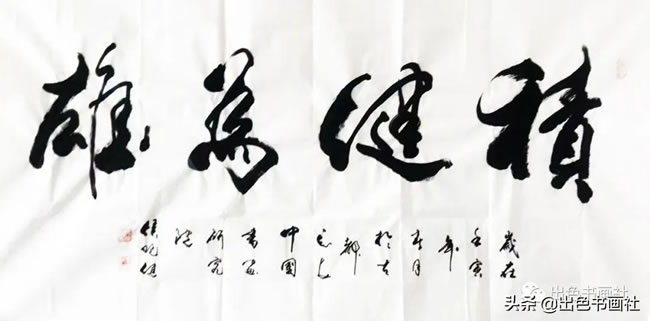 積健為雄
歲在
壬寅
年
於古
都
中國
書画
研究
院
出色书画社
头条 @出色书画社